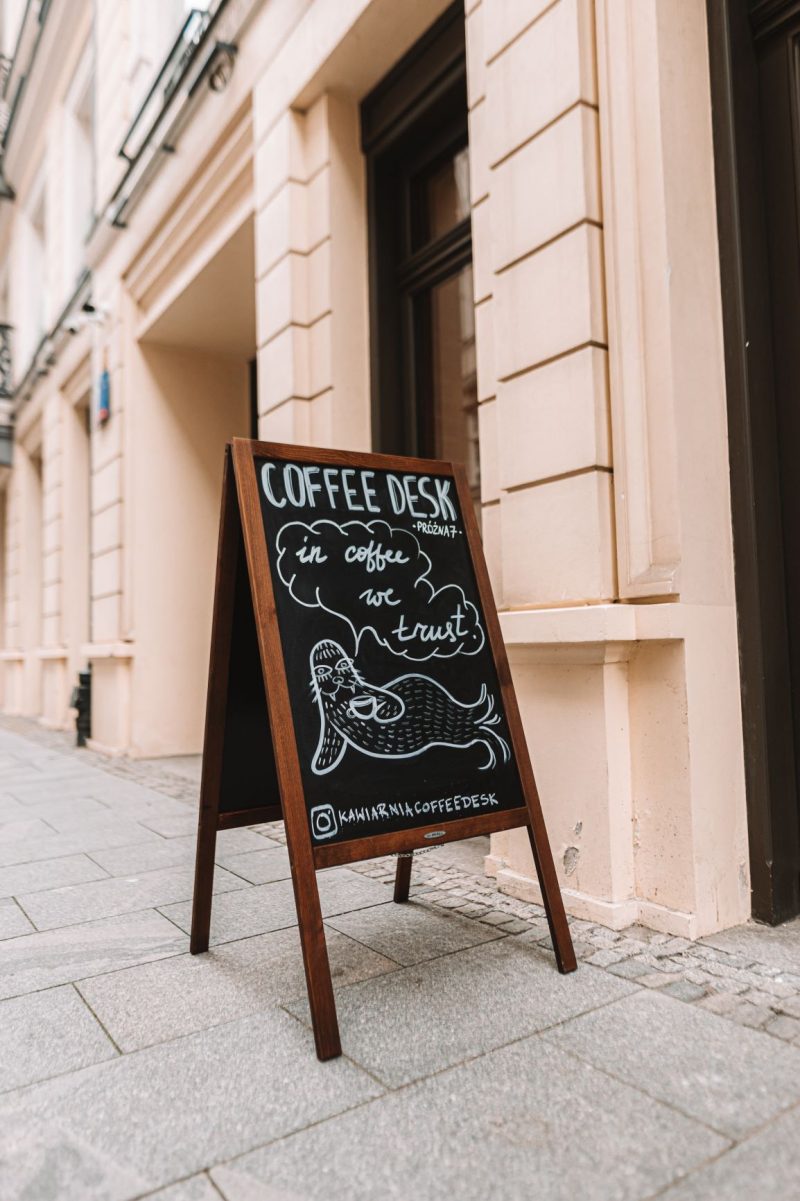 COFFEE DESK
·PRÓŻNA7·
in coffee
we
trust.
KAWIARNIACOFFEEDESK